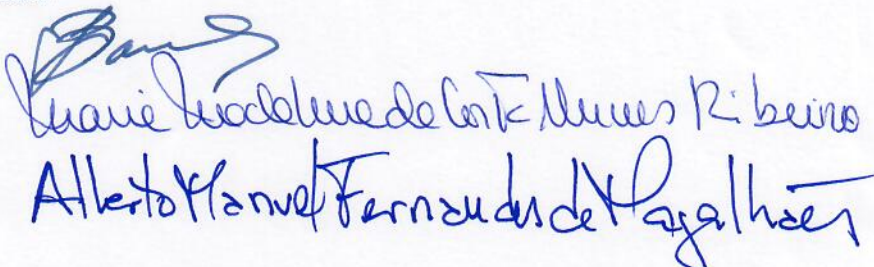 Maria Madalena da Costa Nunes Ribeiro
Alberto Manuel Fernandes de Magalhães